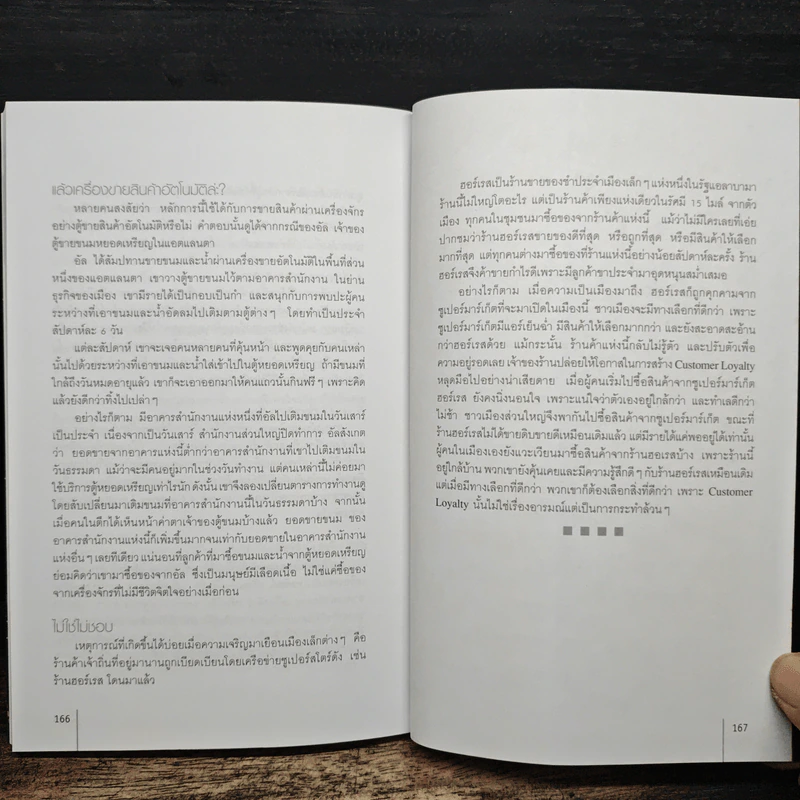 แล้วเครื่องขายสินค้าอัตโนมัติล่ะ?
หลายคนสงสัยว่า หลักการนี้ใช้ได้กับการขายสินค้าผ่านเครื่องจักร
อย่างตู้ขายสินค้าอัตโนมัติหรือไม่ คำตอบนั้นดูได้จากกรณีของอัล เจ้าของ
ตู้ขายขนมหยอดเหรียญในแอตแลนตา
อัล ได้สัมปทานขายขนมและน้ำผ่านเครื่องอัตโนมัติในพื้นที่ส่วน
หนึ่งของแอตแลนตา เขาวางตู้ขายขนมไว้ตามอาคารสำนักงาน ในย่าน
ธุรกิจของเมือง เขามีรายได้เป็นกอบเป็นกำ และสนุกกับการพบปะผู้คน
ระหว่างที่เอาขนมและน้ำอัดลมไปเติมตามตู้ต่างๆ โดยทำเป็นประจำ
สัปดาห์ละ 6 วัน
แต่ละสัปดาห์ เขาจะเจอคนหลายคนที่คุ้นหน้า และพูดคุยกับคนเหล่า
นั้นไปด้วยระหว่างที่เอาขนมและน้ำใส่เข้าไปในตู้หยอดเหรียญ ถ้ามีขนมที่
ใกล้ถึงวันหมดอายุแล้ว เขาก็จะเอาออกมาให้คนแถวนั้นกินฟรีๆ เพราะคิด
แล้วยังดีกว่าทิ้งไปเปล่าๆ
อย่างไรก็ตาม มีอาคารสำนักงานแห่งหนึ่งที่อัลไปเติมขนมในวันเสาร์
เป็นประจำ เนื่องจากเป็นวันเสาร์ สำนักงานส่วนใหญ่ปิดทำการ อัลสังเกต
ว่า ยอดขายจากอาคารแห่งนี้ต่ำกว่าอาคารสำนักงานที่เขาไปเติมขนมใน
วันธรรมดา แม้ว่าจะมีคนอยู่มากในช่วงวันทำงาน แต่คนเหล่านี้ไม่ค่อยมา
ใช้บริการตู้หยอดเหรียญเท่าไรนัก ดังนั้น เขาจึงลองเปลี่ยนตารางการทำงานดู
โดยสับเปลี่ยนมาเติมขนมที่อาคารสำนักงานนี้ในวันธรรมดาบ้าง จากนั้น
เมื่อคนในตึกได้เห็นหน้าค่าตาเจ้าของตู้ขนมบ้างแล้ว ยอดขายขนม ของ
อาคารสำนักงานแห่งนี้ก็เพิ่มขึ้นมากจนเท่ากับยอดขายในอาคารสำนักงาน
แห่งอื่นๆ เลยทีเดียว แน่นอนที่ลูกค้าที่มาซื้อขนมและน้ำจากตู้หยอดเหรียญ
ย่อมคิดว่าเขามาซื้อของจากอัล ซึ่งเป็นมนุษย์มีเลือดเนื้อ ไม่ใช่แค่ซื้อของ
จากเครื่องจักรที่ไม่มีชีวิตจิตใจอย่างเมื่อก่อน
ไม่ใช่ไม่ชอบ
เหตุการณ์ที่เกิดขึ้นได้บ่อยเมื่อความเจริญมาเยือนเมืองเล็กต่างๆ คือ
ร้านค้าเจ้าถิ่นที่อยู่มานานถูกเบียดเบียนโดยเครือข่ายซูเปอร์สโตร์ดัง เช่น
ร้านฮอร์เรส โดนมาแล้ว
166
ฮอร์เรสเป็นร้านขายของชำประจำเมืองเล็กๆ แห่งหนึ่งในรัฐแอลาบามา
ร้านนี้ไม่ใหญ่โตอะไร แต่เป็นร้านค้าเพียงแห่งเดียวในรัศมี 15 ไมล์ จากตัว
เมือง ทุกคนในชุมชนมาซื้อของจากร้านค้าแห่งนี้ แม้ว่าไม่มีใครเลยที่เอ่ย
ปากชมว่าร้านฮอร์เรสขายของดีที่สุด หรือถูกที่สุด หรือมีสินค้าให้เลือก
มากที่สุด แต่ทุกคนต่างมาซื้อของที่ร้านแห่งนี้อย่างน้อยสัปดาห์ละครั้ง ร้าน
ฮอร์เรสจึงค้าขายกำไรดีเพราะมีลูกค้าขาประจำมาอุดหนุนสม่ำเสมอ
อย่างไรก็ตาม เมื่อความเป็นเมืองมาถึง ฮอร์เรสก็ถูกคุกคามจาก
ซูเปอร์มาร์เก็ตที่จะมาเปิดในเมืองนี้ ชาวเมืองจะมีทางเลือกที่ดีกว่า เพราะ
ซูเปอร์มาร์เก็ตมีแอร์เย็นฉ่ำ มีสินค้าให้เลือกมากกว่า และยังสะอาดสะอ้าน
กว่าฮอร์เรสด้วย แม้กระนั้น ร้านค้าแห่งนี้กลับไม่รู้ตัว และปรับตัวเพื่อ
ความอยู่รอดเลย เจ้าของร้านปล่อยให้โอกาสในการสร้าง Customer Loyalty
หลุดมือไปอย่างน่าเสียดาย เมื่อผู้คนเริ่มไปซื้อสินค้าจากซูเปอร์มาร์เก็ต
ฮอร์เรส ยังคงนิ่งนอนใจ เพราะแน่ใจว่าตัวเองอยู่ใกล้กว่า และทำเลดีกว่า
ไม่ช้า ชาวเมืองส่วนใหญ่จึงพากันไปซื้อสินค้าจากซูเปอร์มาร์เก็ต ขณะที่
ร้านฮอร์เรสไม่ได้ขายดิบขายดีเหมือนเดิมแล้ว แต่มีรายได้แค่พออยู่ได้เท่านั้น
ผู้คนในเมืองเองยังแวะเวียนมาซื้อสินค้าจากร้านฮอร์เรสบ้าง เพราะร้านนี้
อยู่ใกล้บ้าน พวกเขายังคุ้นเคยและมีความรู้สึกดีๆ กับร้านฮอร์เรสเหมือนเดิม
แต่เมื่อมีทางเลือกที่ดีกว่า พวกเขาก็ต้องเลือกสิ่งที่ดีกว่า เพราะ Customer
Loyalty นั้นไม่ใช่เรื่องอารมณ์แต่เป็นการกระทำล้วนๆ
167